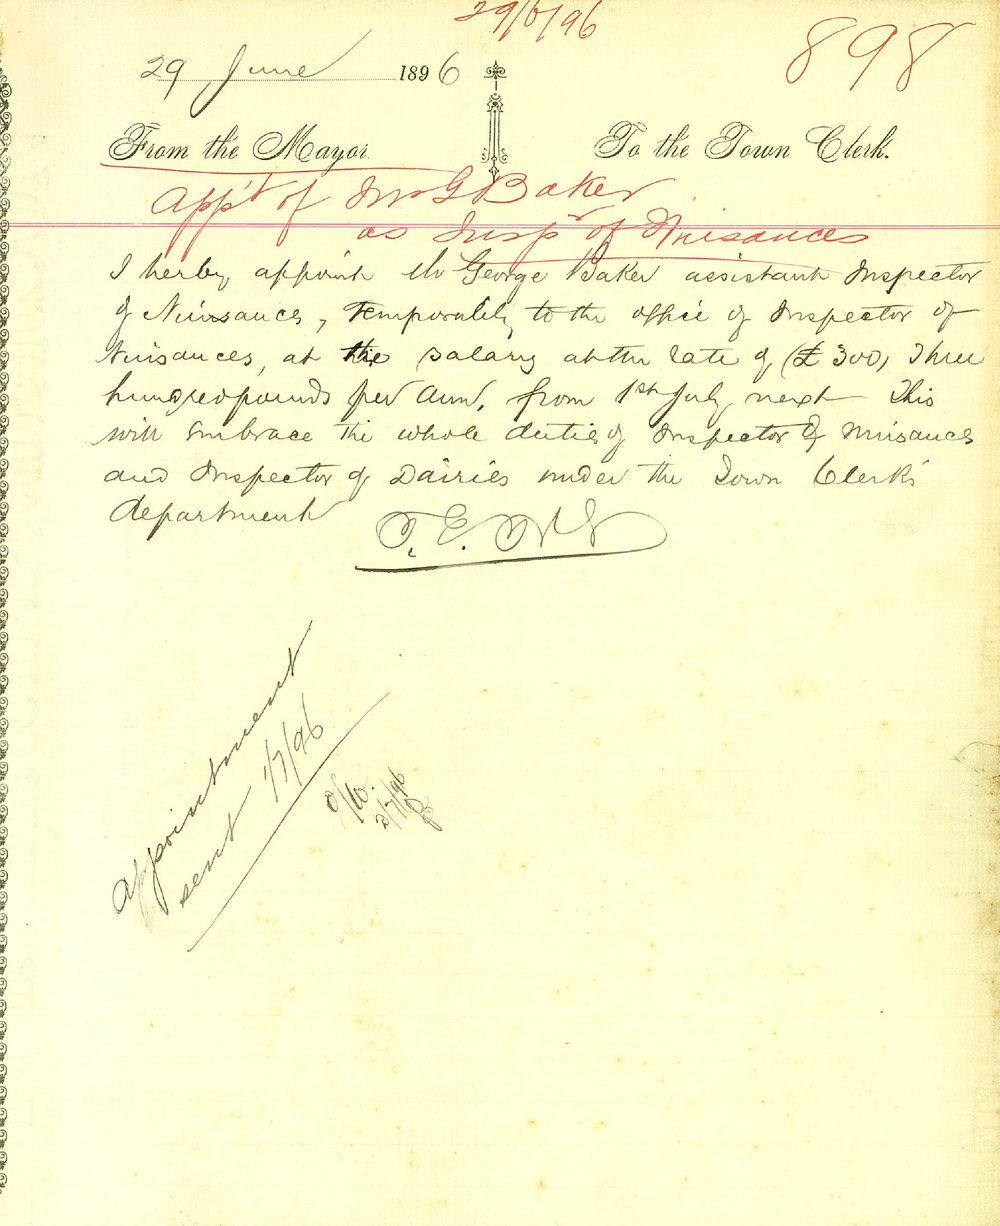 29/6/96
898
29 June 1896
From the Mayor. To the Town Clerk.
App't of Mr G Baker
as Insp'r of Nuisances
I herby appoint Mr George Baker assistant Inspector
of Nuisances, temporalily to the office of Inspector of
Nuisances, at the salary at the rate of (£300) three
hundred pounds per ann, from 1st July next This
will embrace the whole duties of Inspector of Nuisances
and Inspector of Dairies under the Town Clerk's
department
Appointment
sent 1/7/96
2/7/96